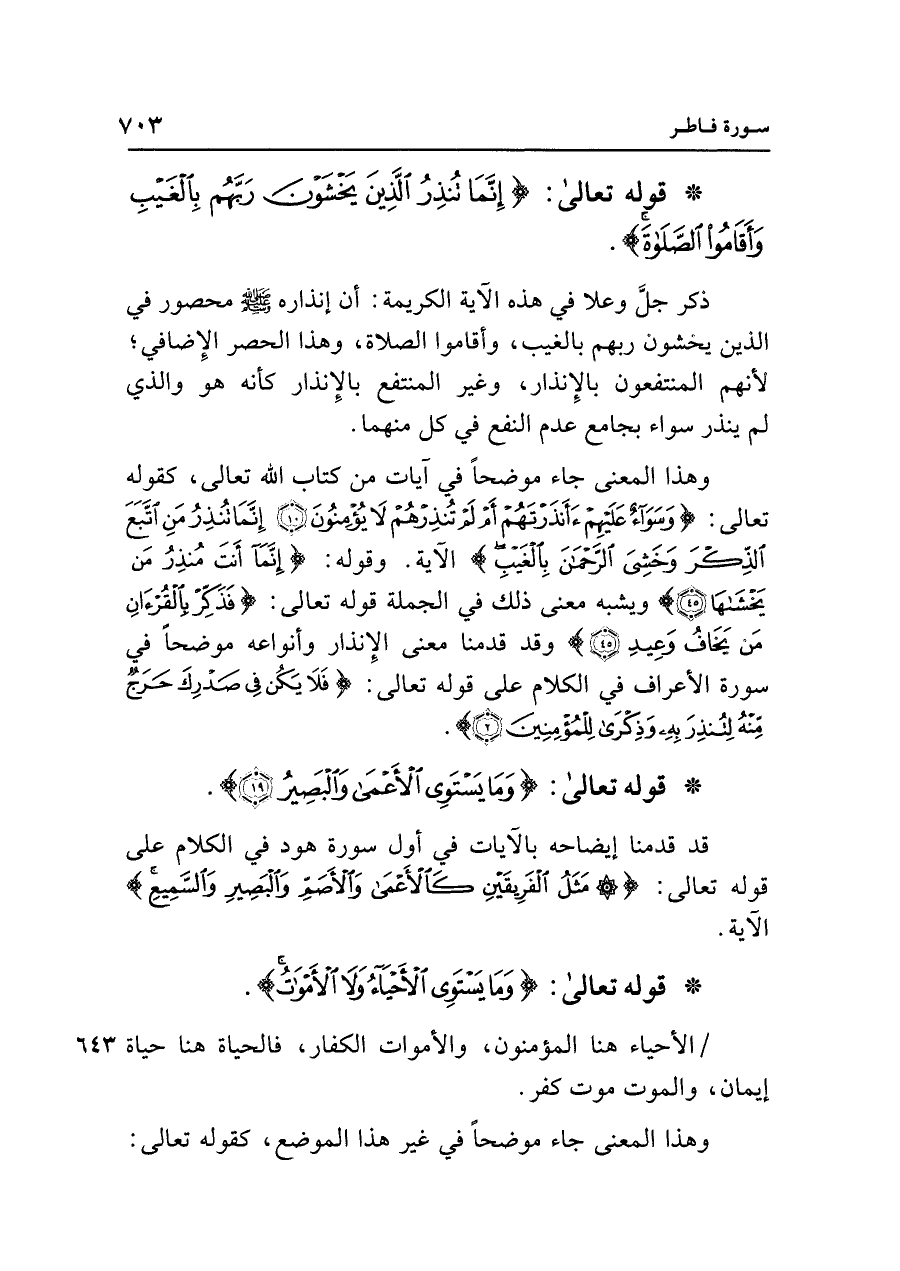 سورة فاطر ٧٠٣
* قوله تعالىٰ: ﴿ إِنَّمَا تُنذِرُ ٱلَّذِينَ يَخْشَوْنَ رَبَّهُم بِٱلْغَيْبِ
وَأَقَامُوا۟ ٱلصَّلَوٰةَۚ ﴾ .
ذكر جلَّ وعلا في هذه الآية الكريمة: أن إنذاره ﷺ محصور في
الذين يخشون ربهم بالغيب، وأقاموا الصلاة، وهذا الحصر الإِضافي؛
لأنهم المنتفعون بالإِنذار، وغير المنتفع بالإِنذار كأنه هو والذي
لم ينذر سواء بجامع عدم النفع في كل منهما.
وهذا المعنى جاء موضحاً في آيات من كتاب الله تعالى، كقوله
تعالى: ﴿ وَسَوَآءٌ عَلَيْهِمْ ءَأَنذَرْتَهُمْ أَمْ لَمْ تُنذِرْهُمْ لَا يُؤْمِنُونَ ١٠ إِنَّمَا تُنذِرُ مَنِ ٱتَّبَعَ
ٱلذِّكْرَ وَخَشِىَ ٱلرَّحْمَٰنَ بِٱلْغَيْبِۖ ﴾ الآية. وقوله: ﴿ إِنَّمَآ أَنتَ مُنذِرُ مَن
يَخْشَىٰهَا ٤٥ ﴾ ويشبه معنى ذلك في الجملة قوله تعالى: ﴿ فَذَكِّرْ بِٱلْقُرْءَانِ
مَن يَخَافُ وَعِيدِ ٤٥ ﴾ وقد قدمنا معنى الإِنذار وأنواعه موضحاً في
سورة الأعراف في الكلام على قوله تعالى: ﴿ فَلَا يَكُن فِى صَدْرِكَ حَرَجٌ
مِّنْهُ لِتُنذِرَ بِهِۦ وَذِكْرَىٰ لِلْمُؤْمِنِينَ ٢ ﴾ .
* قوله تعالىٰ: ﴿ وَمَا يَسْتَوِى ٱلْأَعْمَىٰ وَٱلْبَصِيرُ ١٩ ﴾ .
قد قدمنا إيضاحه بالآيات في أول سورة هود في الكلام على
قوله تعالى: ﴿ ۞ مَثَلُ ٱلْفَرِيقَيْنِ كَٱلْأَعْمَىٰ وَٱلْأَصَمِّ وَٱلْبَصِيرِ وَٱلسَّمِيعِۚ ﴾
الآية.
* قوله تعالىٰ: ﴿ وَمَا يَسْتَوِى ٱلْأَحْيَآءُ وَلَا ٱلْأَمْوَٰتُۚ ﴾ .
/ الأحياء هنا المؤمنون، والأموات الكفار، فالحياة هنا حياة ٦٤٣
إيمان، والموت موت كفر.
وهذا المعنى جاء موضحاً في غير هذا الموضع، كقوله تعالى: